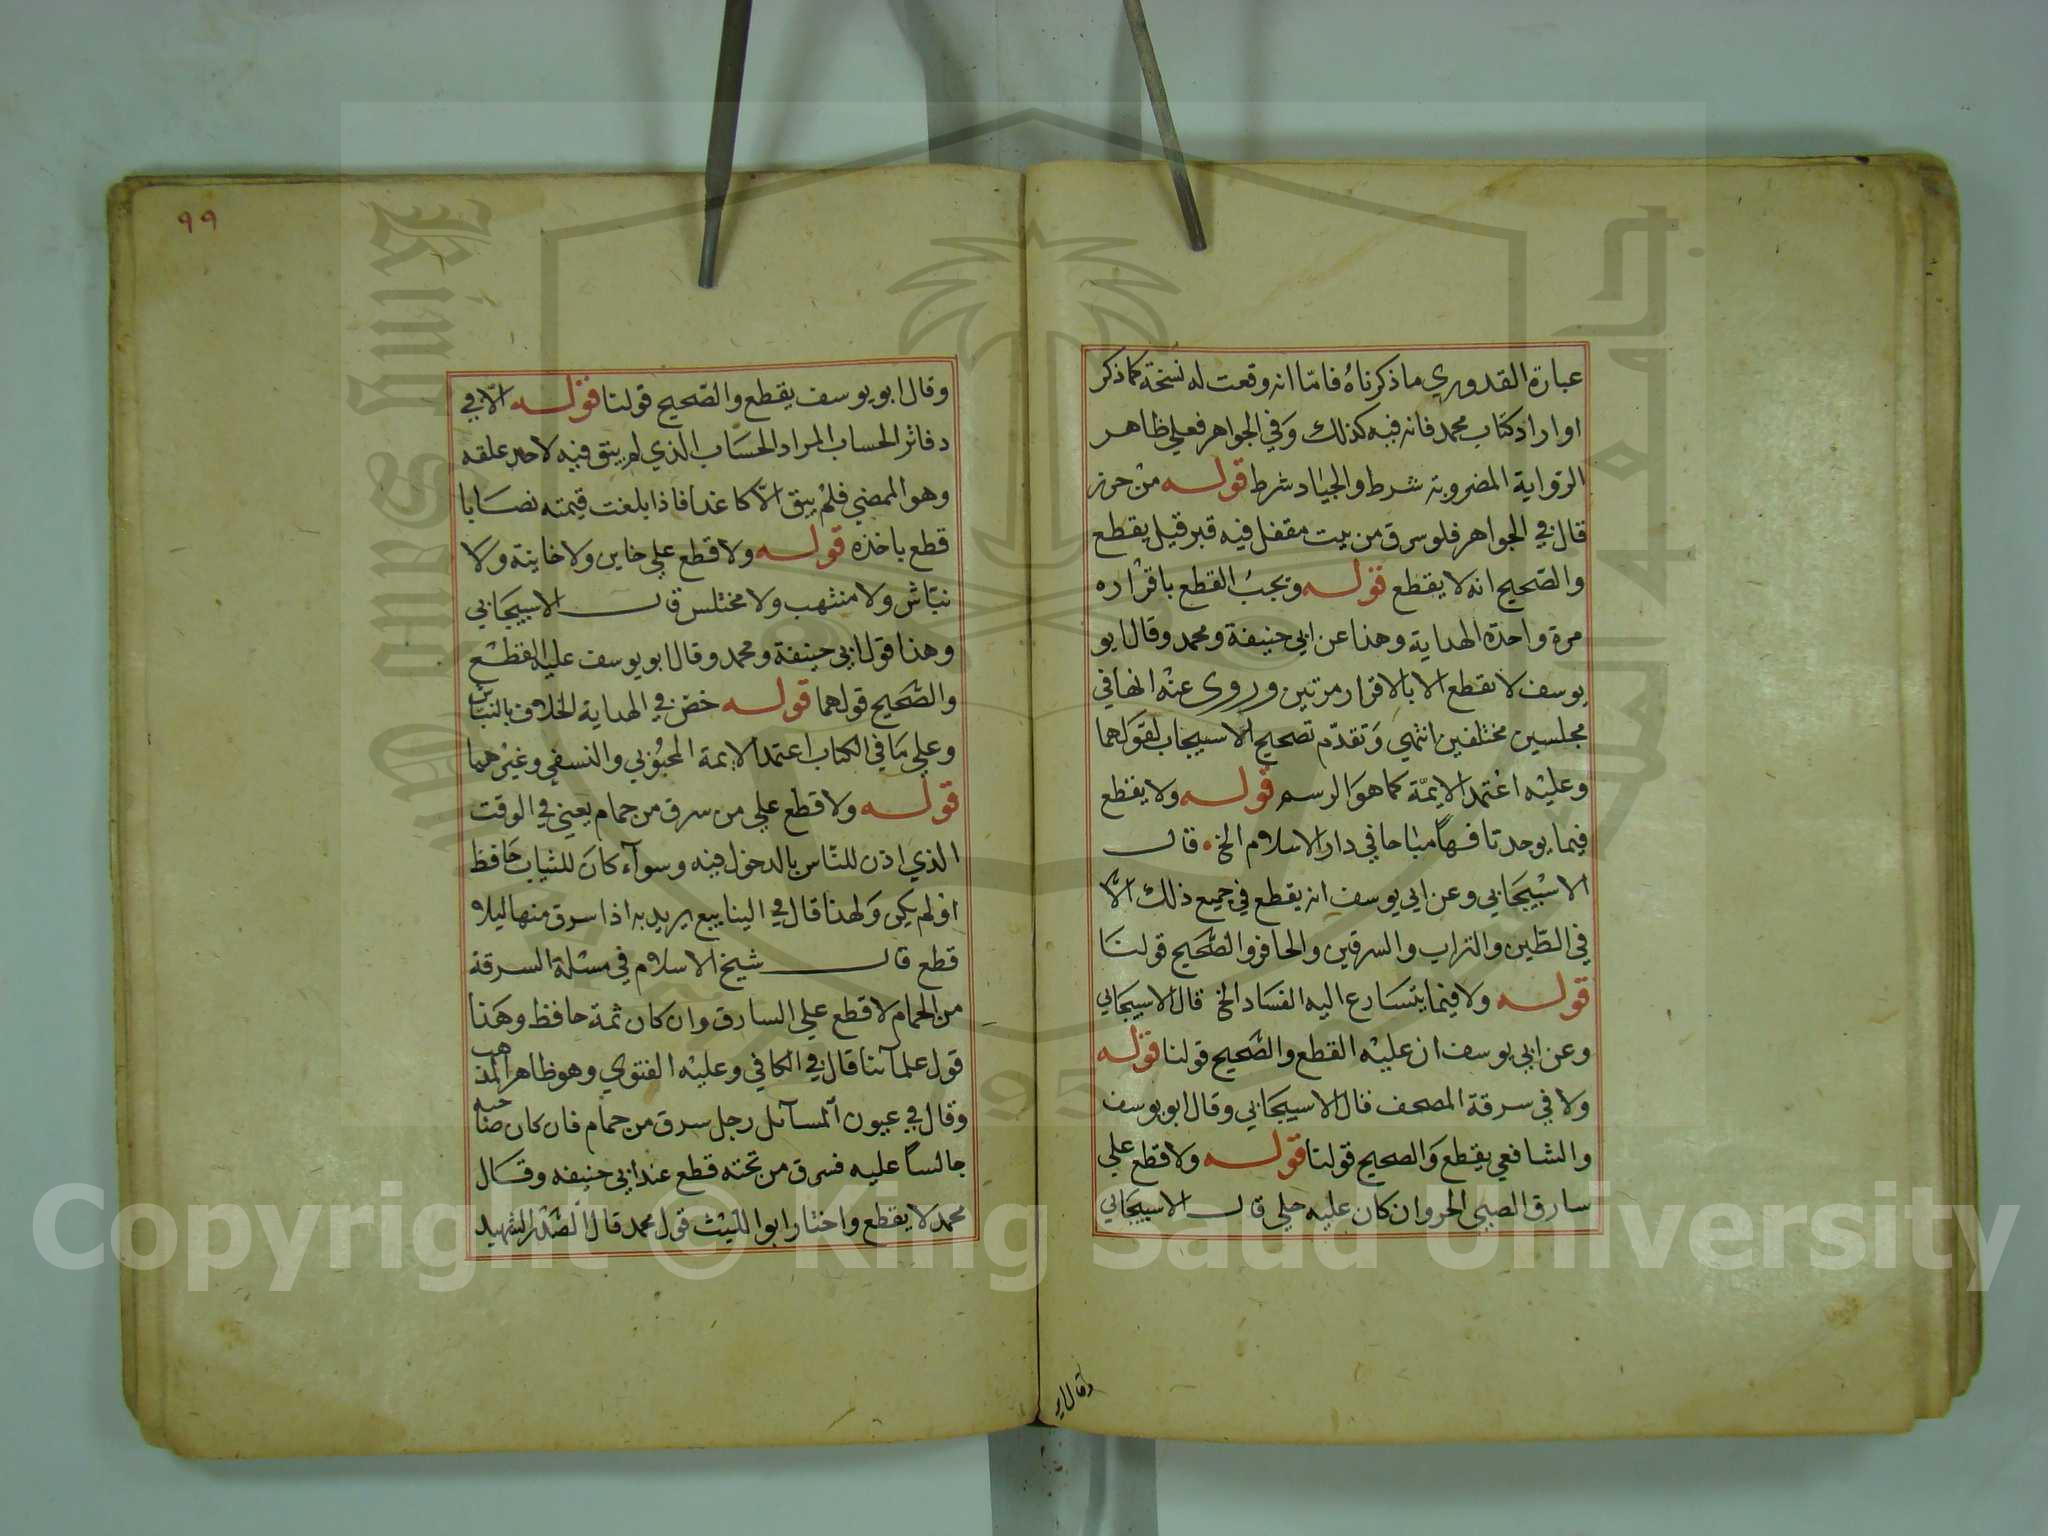 عبارة القدوري ما ذكرناه فاما انه وقعت له نسخة كما ذكر
او اراد كتاب محمد فانه فيه كذلك وفي الجواهر فعلي ظاهر
الرواية المضروبة شرط والجياد شرط قوله من حرز
قال في الجواهر فلو سرق من بيت مقفل فيه قبر قيل يقطع
والصحيح انه لا يقطع قوله ويجب القطع باقراره
مرة واحدة الهداية وهذا عن ابي حنيفة ومحمد وقال ابو
يوسف لا يقطع الا بالاقرار مرتين وروي عنه انها في
مجلسين مختلفين انتهي وتقدم تصحيح الاسبيجاب لقولهما
وعليه اعتمد الايمة كما هو الرسم قوله ولا يقطع
فيما يوجد تافها مباحا في دار الاسلام الخ قال
الاسبيجابي وعن ابي يوسف انه يقطع في جميع ذلك الا
في الطين والتراب والسرقين والصحيح قولنا
قوله ولا فيما يتسارع اليه الفساد الخ قال الاسبيجابي
وعن ابي يوسف ان عليه القطع والصحيح قولنا قوله
ولا في سرقة المصحف قال الاسبيجابي وقال ابو يوسف
والشافعي يقطع والصحيح قولنا قوله ولا قطع علي
سارق الصبي الحر وان كان عليه حلي قال الاسبيجابي
وقال ابو
٩٩
وقال ابو يوسف يقطع والصحيح قولنا قوله الا في
دفاتر الحساب المراد الحساب الذي لم يبق فيه لاحد علقه
وهو الممضي فلم يبق الا كاغدا فاذا بلغت قيمته نصابا
قطع باخذه قوله ولا قطع علي خاين ولا خاينة ولا
نباش ولا منتهب ولا مختلس قال الاسبيجابي
وهذا قول ابي حنيفة ومحمد وقال ابو يوسف عليه القطع
والصحيح قولهما قوله خص في الهداية الخلاف بالنباش
وعلي ما في الكتاب اعتمد الايمة المحبوبي والنسفي وغيرهما
قوله ولا قطع علي من سرق من حمام يعني في الوقت
الذي اذن للناس بالدخول فيه وسوآء كان للثياب حافظ
او لم يكن ولهذا قال في الينابيع يريد به اذا سرق منها ليلا
قطع قال شيخ الاسلام في مسئلة السرقة
من الحمام لا قطع علي السارق وان كان ثمة حافظ وهذا
قول علمآئنا قال في الكافي وعليه الفتوي وهو ظاهر المذهب
وقال في عيون المسآئل رجل سرق من حمام فان كان صاحبه
جالسا عليه فسرق من تحته قطع عند ابي حنيفه وقال
محمد لا يقطع واختار ابو الليث قول محمد قال الصدر الشهيد
Copyright © King Saud University